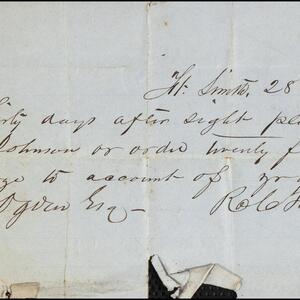 Ft. Smith, 28
days after sight
Johnson or order twenty
to account of
Ogden Esq